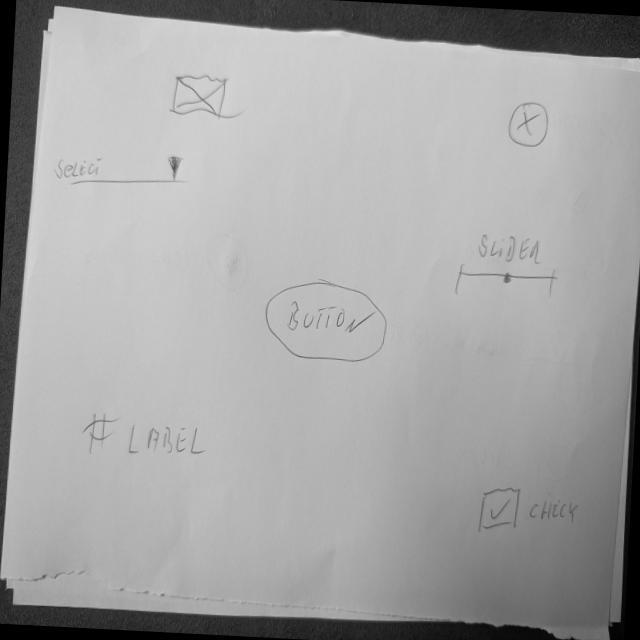 X
Select
SLIDER
BUTTON
# LABEL
CHECK